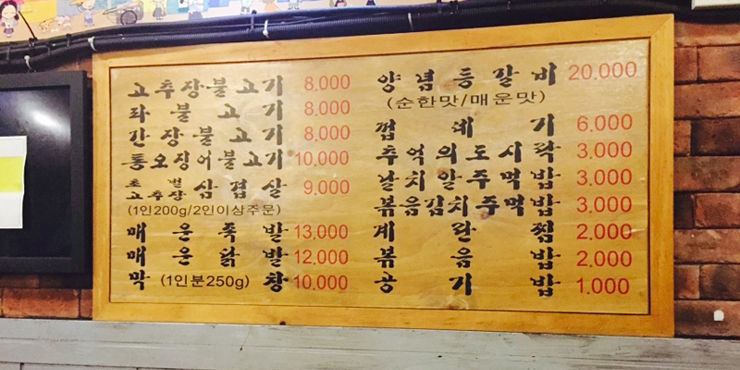 고추장불고기 8,000
좌불고기 8,000
간장불고기 8,000
통오징어불고기 10,000
초벌
고추장 삼겹살 9,000
(1인200g/2인이상주문)
매운족발 13,000
매운닭발 12,000
막 (1인분250g) 창 10,000
양념등갈비 20,000
(순한맛/매운맛)
껍데기 6,000
추억의도시락 3,000
날치알주먹밥 3,000
볶음김치주먹밥 3,000
계란찜 2,000
볶음밥 2,000
공기밥 1,000